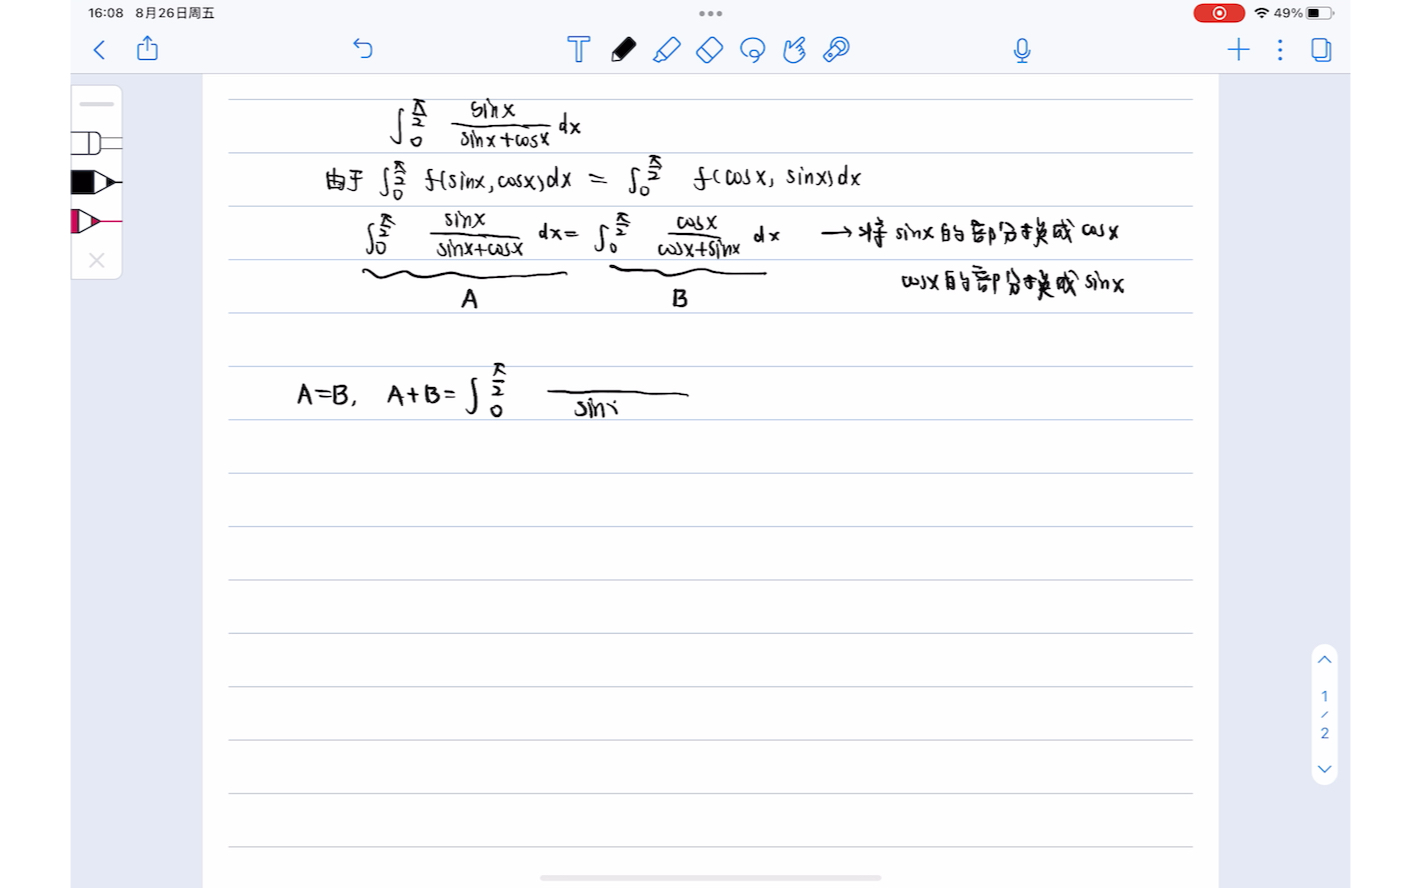 16:08 8月26日周五
49%
T
∫₀^(π/2) sinx/(sinx+cosx) dx
由于 ∫₀^(π/2) f(sinx, cosx)dx = ∫₀^(π/2) f(cosx, sinx)dx
∫₀^(π/2) sinx/(sinx+cosx) dx = ∫₀^(π/2) cosx/(cosx+sinx) dx → 将sinx的部分换成cosx
cosx的部分换成sinx
A B
A=B, A+B= ∫₀^(π/2) /sinx
1
/
2